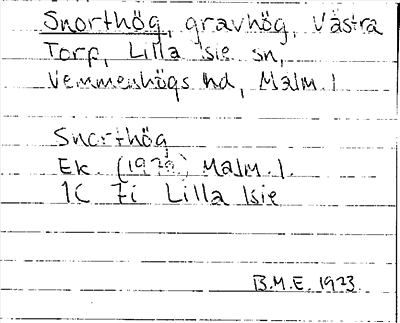 Snorthög, gravhög, Västra
Torp, Lilla Isie sn,
Vemmenhögs hd, Malm. l
Snorthög
Ek. (1970) Malm. l.
1C 7i Lilla Isie
B.M.E. 1973